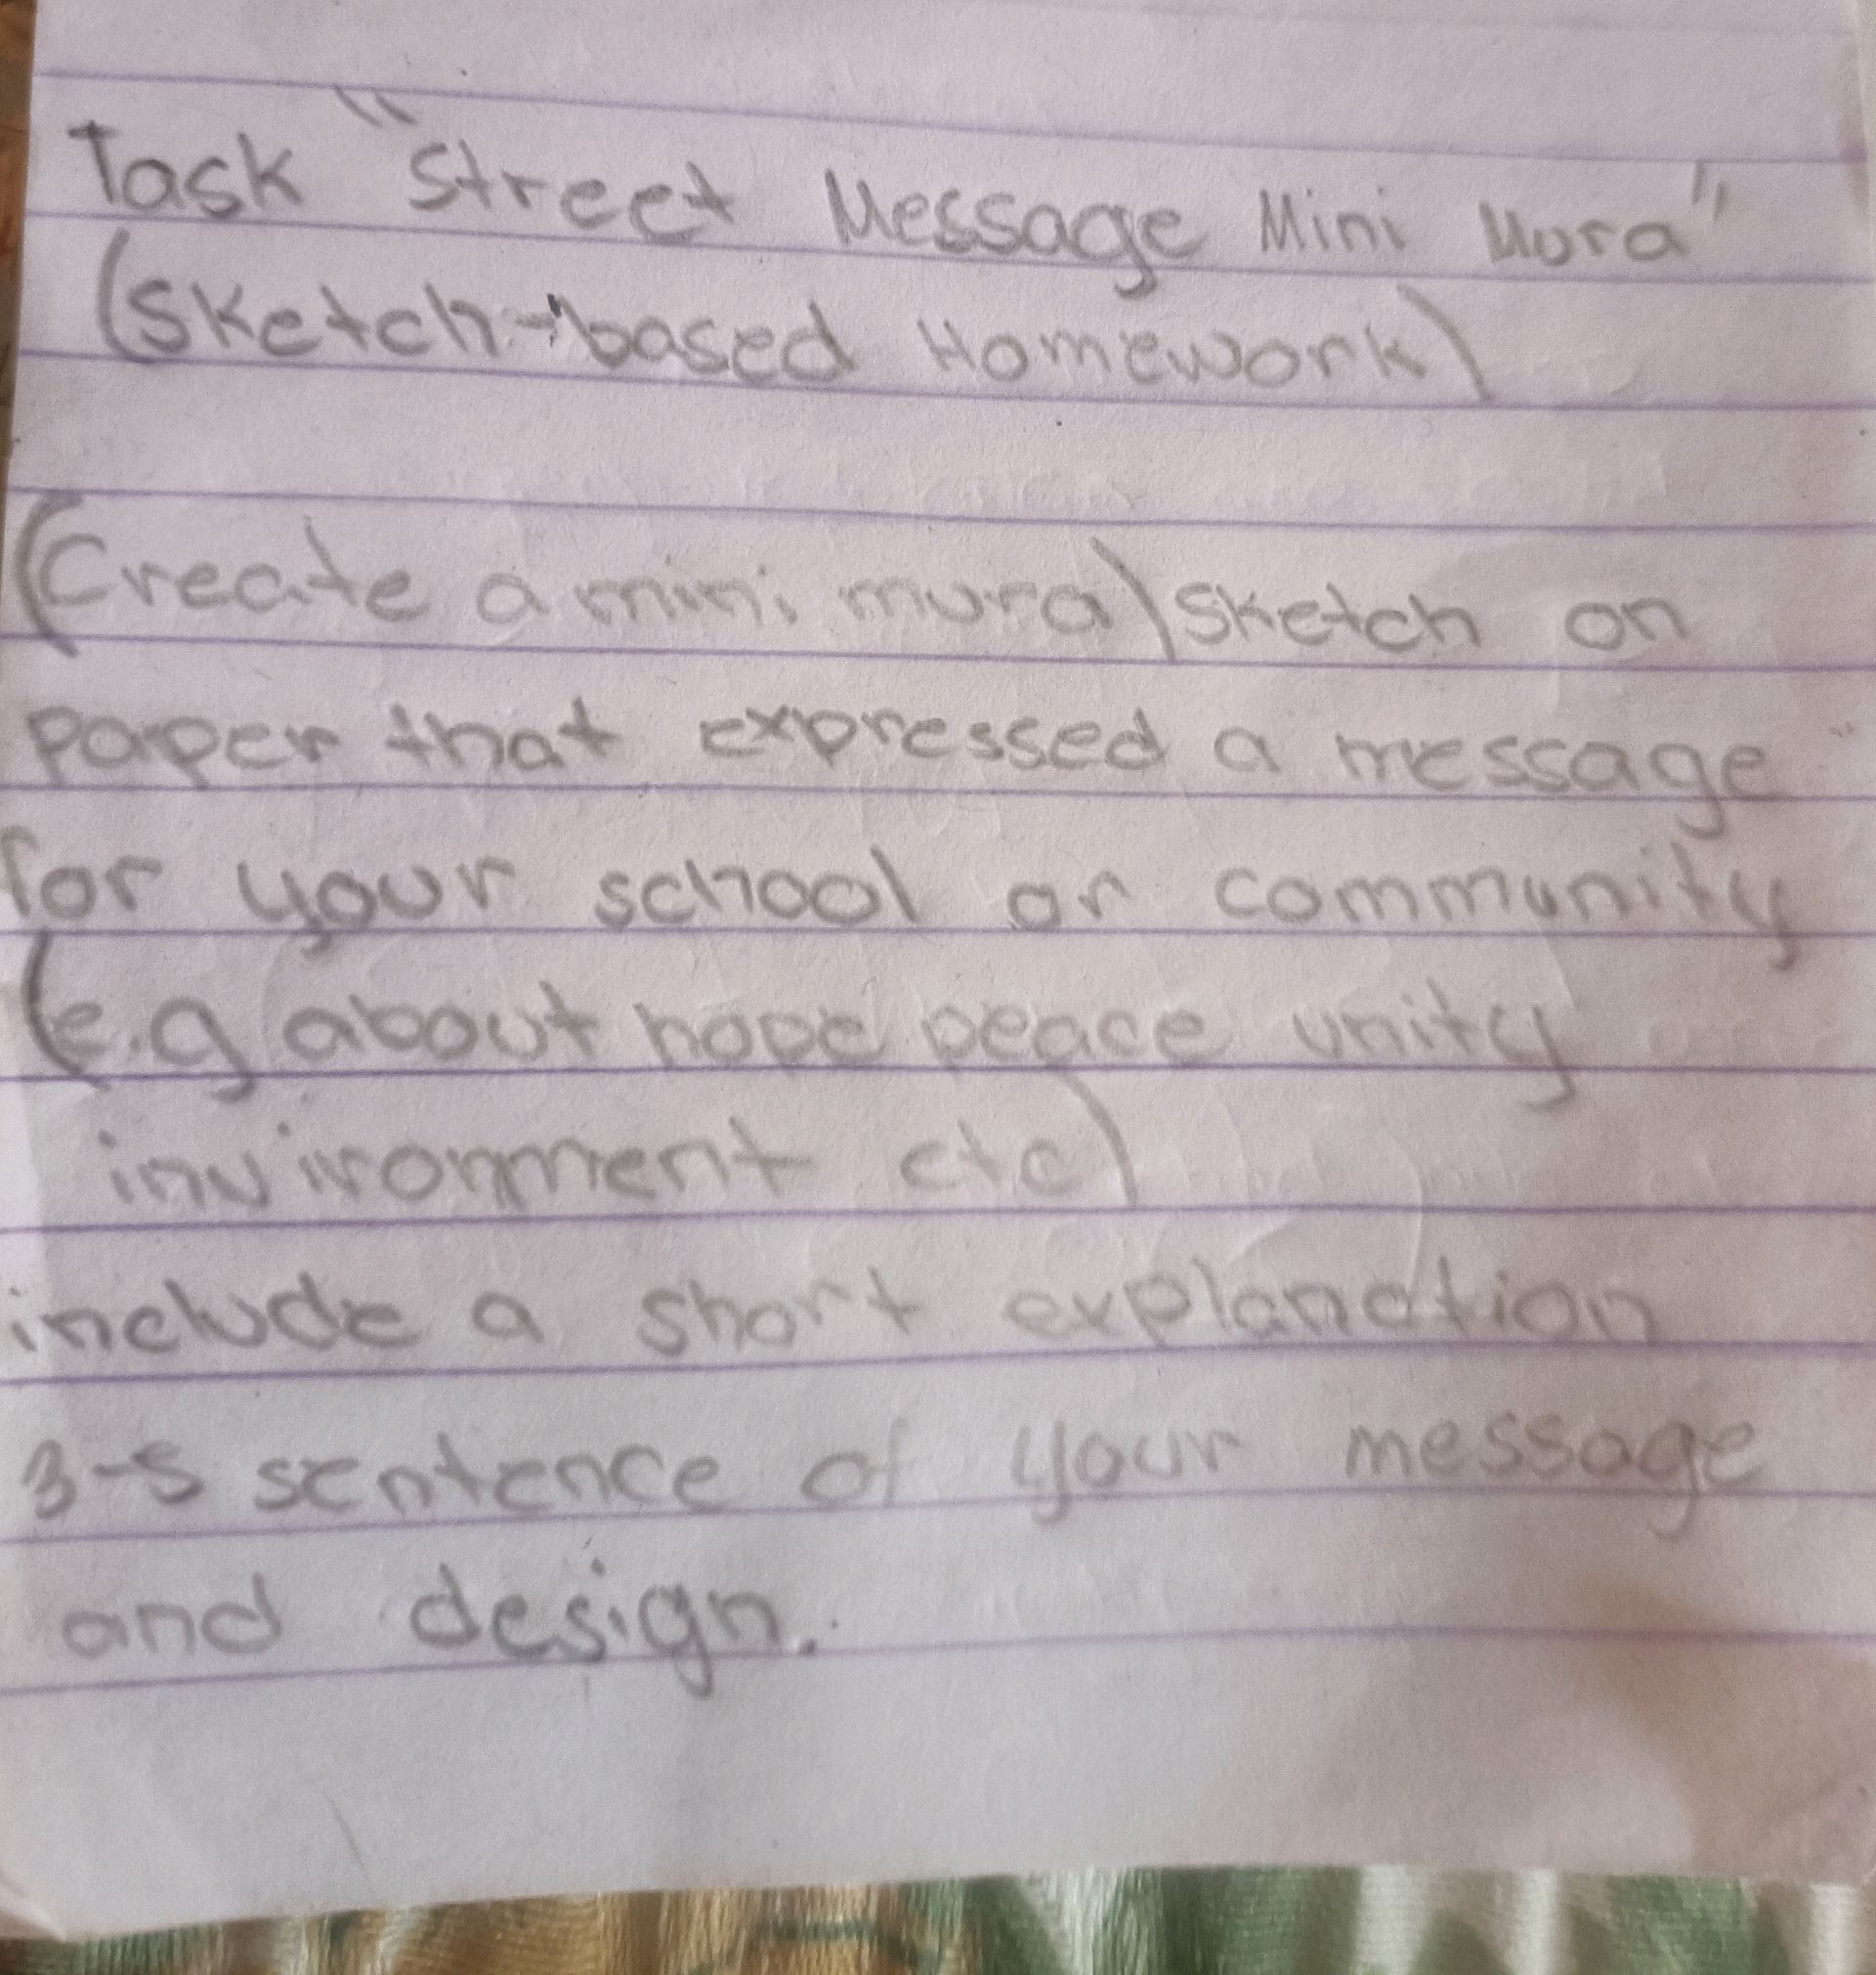 Task "Street Message Mini Mura"
(Sketch-based Homework)
(Create a mini mura) sketch on
paper that expressed a message
for your school or community
(e.g about hope peace unity
invironment etc)
include a short explanation
3-5 sentence of your message
and design.